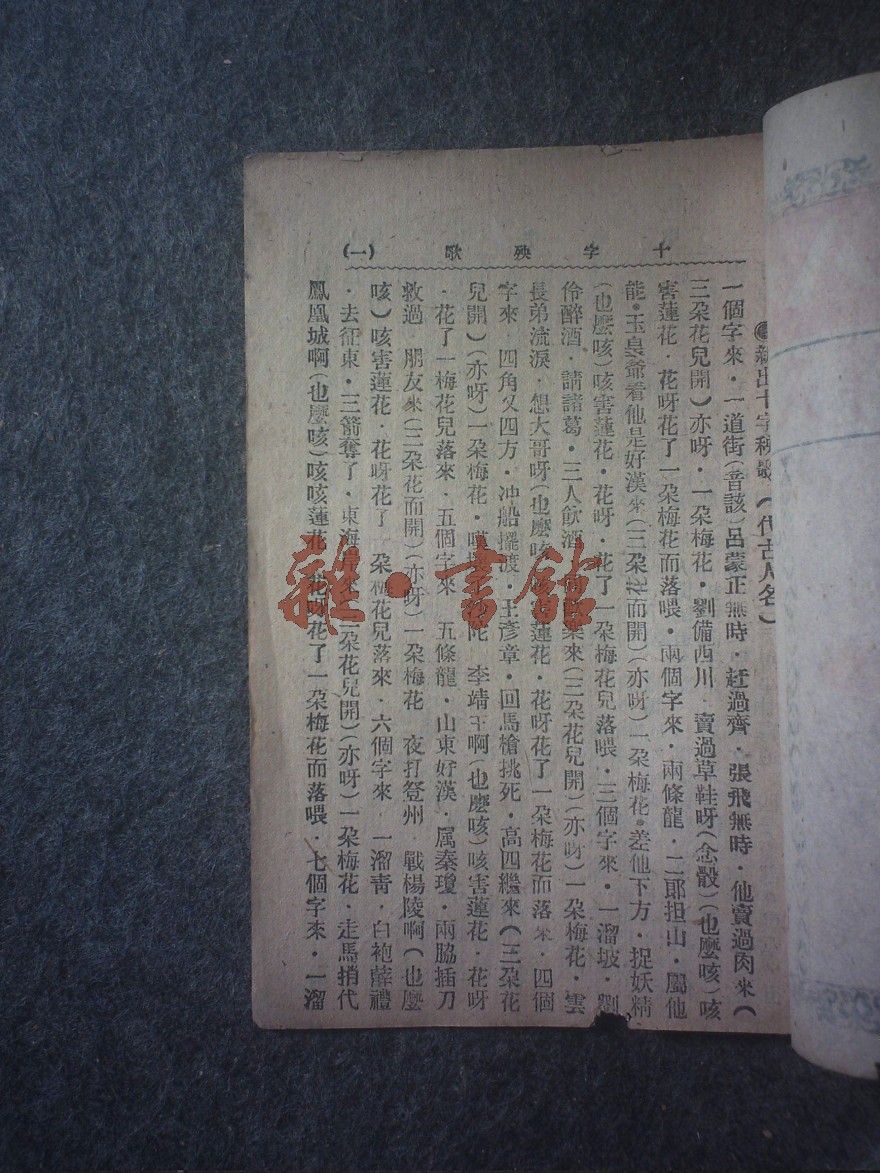 十字殃歌 (一)
新出十字秧歌(代古人名)
一個字來·一道街(音該)呂蒙正無時·赶過齊·張飛無時·他賣過肉來(
三朶花兒開)亦呀·一朶梅花·劉備西川·賣過草鞋呀(念骰)(也麽咳)咳
害蓮花·花呀花了一朶梅花而落喂·兩個字來·兩條龍·二郎担山·屬他
能·玉皇爺看他是好漢來(三朶花而開)(亦呀)一朶梅花·差他下方·捉妖精
(也麽咳)咳害蓮花·花呀·花了一朶梅花兒落喂·三個字來·一溜坡·劉
伶醉酒·請諸葛·三人飲酒 來(三朶花兒開)(亦呀)一朶梅花·雲
長弟流淚·想大哥呀(也麽咳 蓮花·花呀花了一朶梅花而落來·四個
字來·四角又四方·冲船擺渡·王彥章·回馬槍挑死·高四繼來(三朶花
兒開)(亦呀)一朶梅花· 李靖王啊(也麽咳)咳害蓮花·花呀
·花了一梅花兒落來·五個字來 五條龍·山東好漢·属秦瓊·兩脇插刀
救過·朋友來(三朶花而開)(亦呀)一朶梅花 夜打登州 戰楊陵啊(也麽
咳)咳害蓮花·花呀花了 朶梅花兒落來·六個字來·一溜靑·白袍薛禮
·去征東·三箭奪了·東海岸來(三朶花兒開)(亦呀)一朶梅花·走馬捎代
鳳凰城啊(也麽咳)咳咳蓮花·花呀花了一朶梅花而落喂·七個字來·一溜
雜·書館